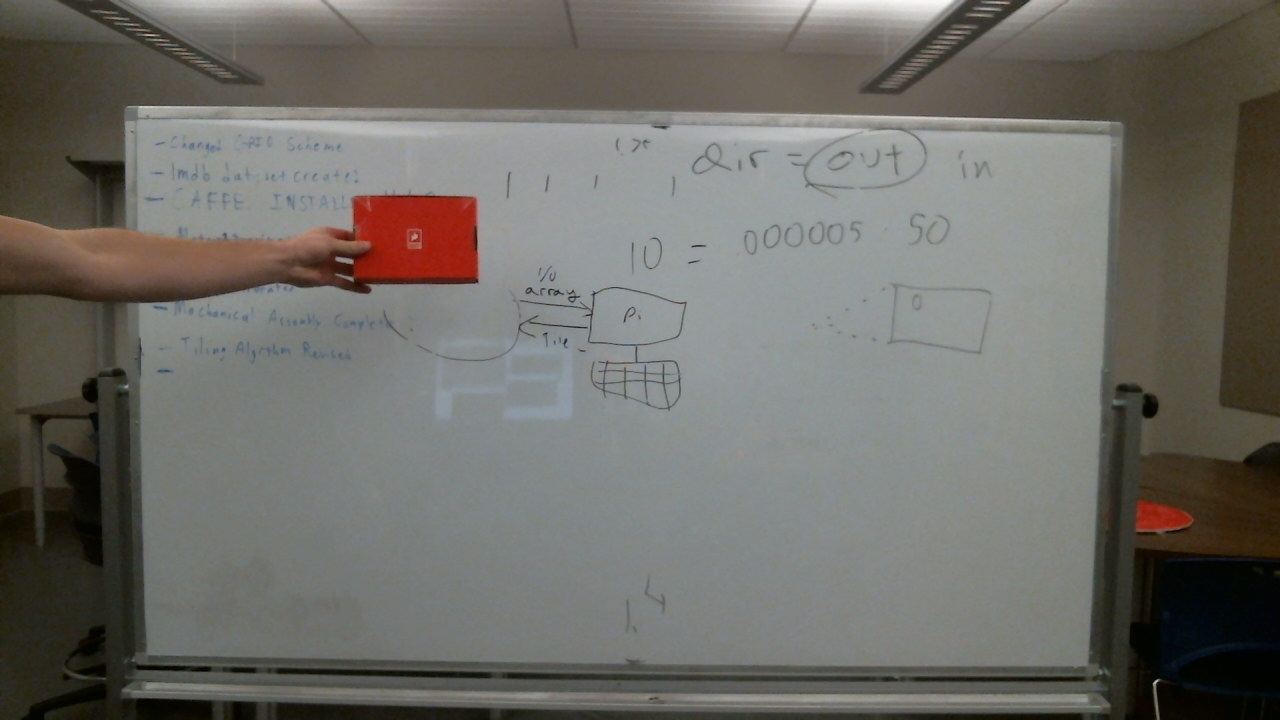 - Changed GPIO Scheme
- Imdb dataset created
- CAFFE INSTALL
- Mechanical Assembly Complete
- Tiling Algrithm Revised
-
dir = out in
10 = 000005 50
I/O
array
Pi
Tile
0
1.4